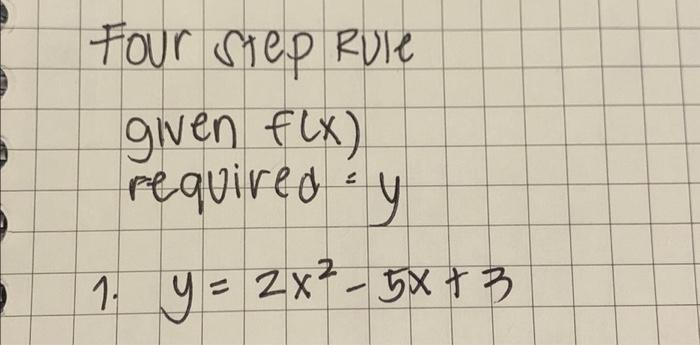 Four step Rule
given f(x)
required = y
1. y = 2x² - 5x + 3